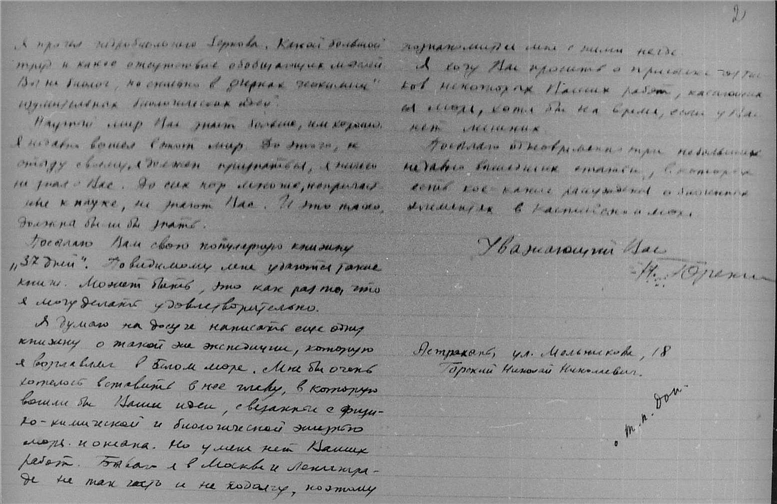 2
Я прочел гидробиолога Зернова. Какой большой
труд и какое отсутствие обобщающих мыслей
Вы не биолог, но сколько в "Очерках геохимии"
изумительных биологических идей.
Научный мир Вас знает больше, им хорошо.
Я недавно вошел в этот мир. До этого, к
стыду своему, я должен признаться, я ничего
не знал о Вас. До сих пор многие,
к науке, не знают Вас. И это такое,
должны были бы знать.
Посылаю Вам свою популярную книжку
„37 дней". Повидимому мне удаются такие
книги. Может быть, это как раз то, что
я могу делать удовлетворительно.
Я думаю на досуге написать еще одну
книжку о такой же экспедиции, которую
я возглавлял в Белом море. Мне бы очень
хотелось вставить в нее главу, в которую
вошли бы Ваши идеи, связанные с физи-
ко-химической и биологической энергией
моря и океана. Но у меня нет Ваших
работ. Бываю я в Москве и Ленингра-
де не так часто и не подолгу, поэтому
познакомиться мне с ними негде.
Я хочу Вас просить о присылке оттис-
ков некоторых Ваших работ, касающих-
ся моря, хотя бы на время, если у Вас
нет лишних
Посылаю одновременно три небольших
недавно вышедших статьи, в которых
есть кое-какие рассуждения о биогенных
элементах в Каспийском море
Уважающий Вас
Н.
Астрахань, ул. Мельникова, 18
Горский Николай Николаевич.